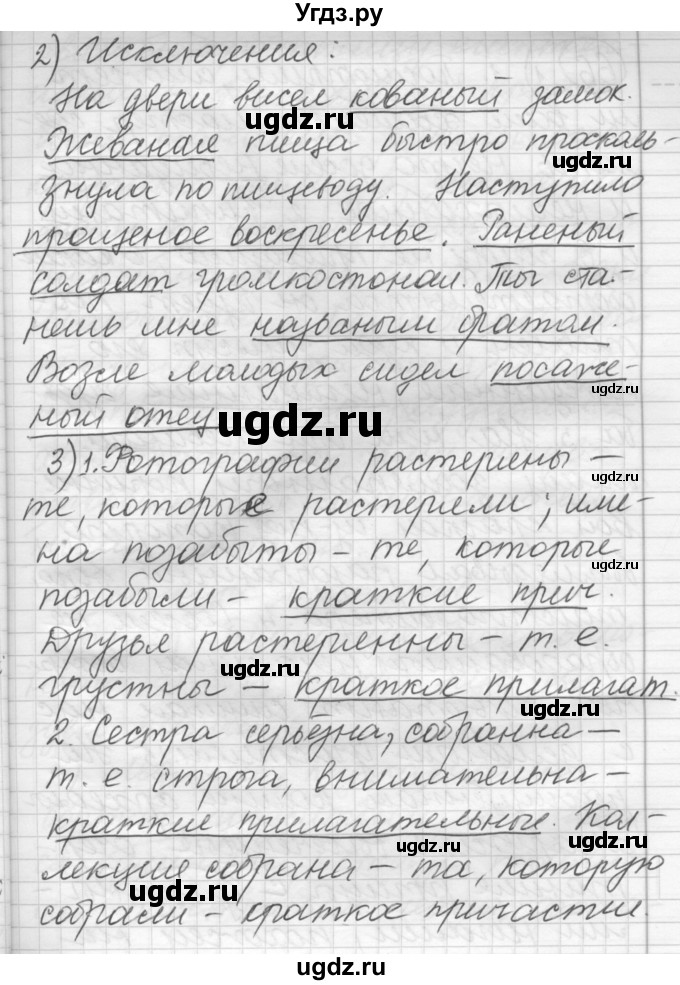 Угдз.ру
2) Исключения:
На двери висел кованый замок.
Жеваная пища быстро проскаль-
знула по пищеводу. Наступило
прощеное воскресенье. Раненый
солдат громко стонал. Ты ста-
нешь мне названым братом.
Возле молодых сидел посаже-
ный отец
3) 1. Фотографии растеряны –
те, которые растеряли; име-
на позабыты – те, которые
позабыли – краткие прич.
Друзья растерянны – т. е.
грустны – краткое прилагат.
2. Сестра серьёзна, собранна –
т. е. строга, внимательна –
краткие прилагательные. Кол-
лекция собрана – та, которую
собрали – краткое причастие.
ugdz.ru
ugdz.ru
ugdz.ru
ugdz.ru
ugdz.ru
ugdz.ru
ugdz.ru
ugdz.ru
ugdz.ru
ugdz.ru
ugdz.ru
ugdz.ru